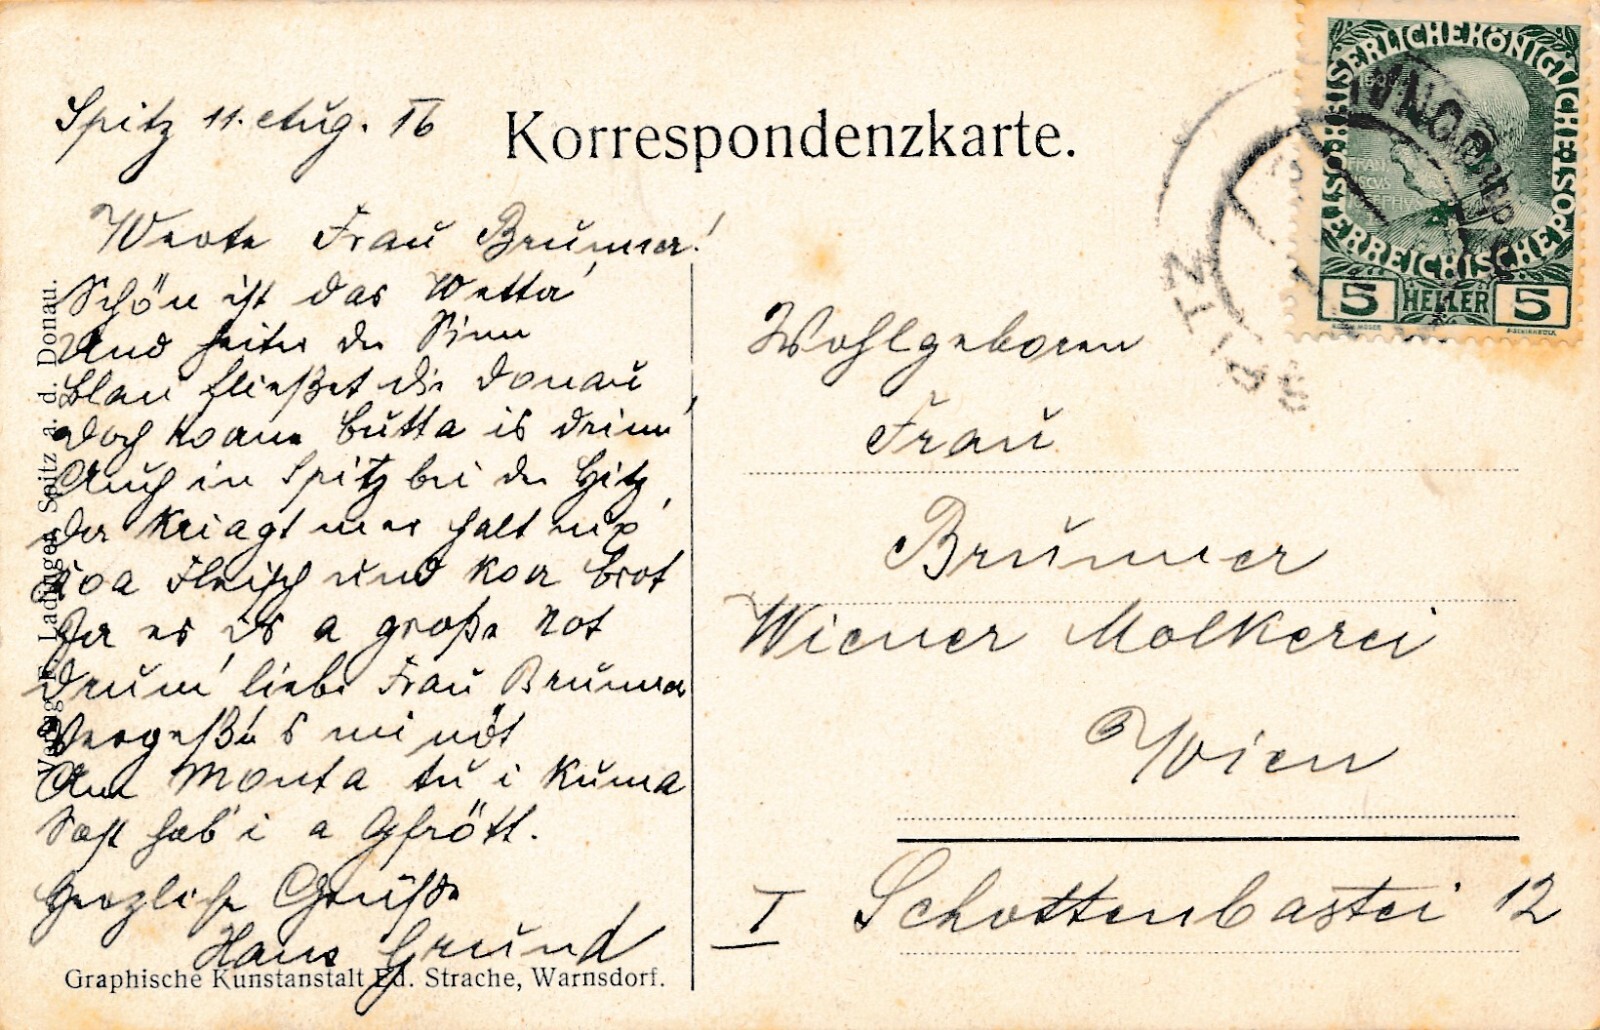 Spitz 11. Aug. 16
Korrespondenzkarte.
Werte Frau Brunner!
Schön ist das Wetta
Und heiter der Sinn
Blau fließet die Donau,
Doch koane Butta is drinn
Auch in Spitz bei der Hitz,
Da kriagt mer halt nix
Koa Fleisch und koa Brot
Ja es is a große Not
Drum liebe Frau Brunner
Vergeßt's mi nöt
Am Monta tu i kuma
Sost hab' i a Gfrött.
Herzliche Grüße
Hans Grund
Verlag F. Ladingen, Spitz a. d. Donau.
Graphische Kunstanstalt Ed. Strache, Warnsdorf.
KAISERLICHE KÖNIGLICHE ÖSTERREICHISCHE POST
FRANCISCVS JOSEPHVS
5 HELLER 5
SPITZ
DONAU
Wohlgeboren
Frau
Brunner
Wiener Molkerei
Wien
I Schottenbastei 12